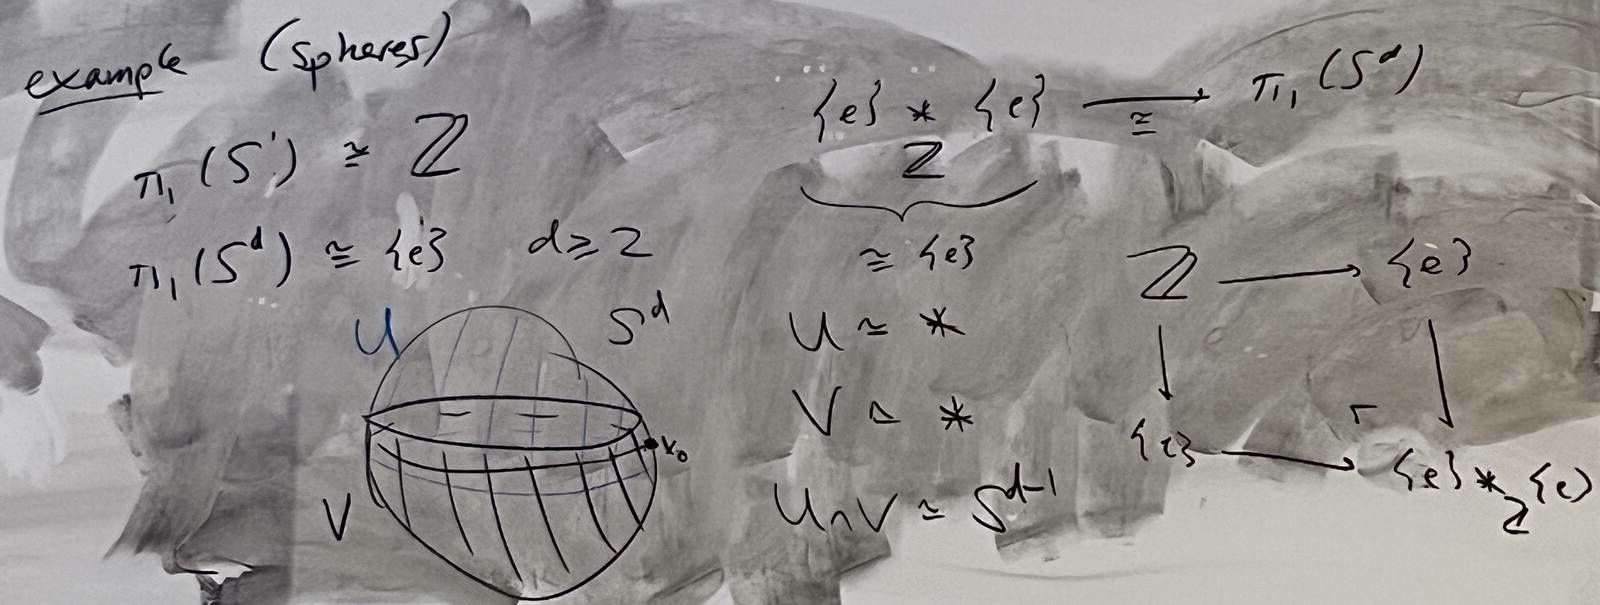 example (spheres)
π₁(S¹) ≅ ℤ
π₁(S^d) ≅ {e} d ≥ 2
U
S^d
x₀
V
{e} * {e} → π₁(S^d)
≅
ℤ
≅ {e}
U ≃ *
V ≃ *
U∩V ≃ S^{d-1}
ℤ → {e}
↓ ↓
{e} → {e} *_ℤ {e}